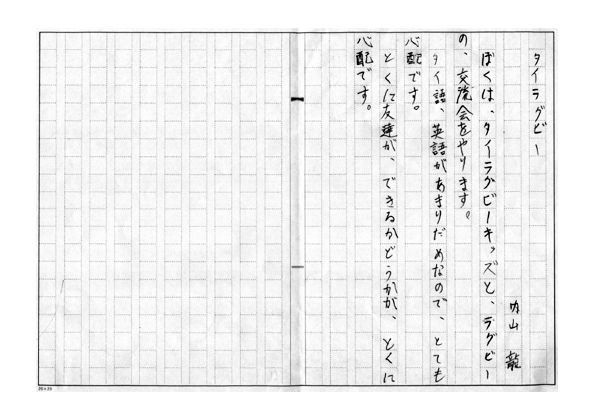 タイラグビー
内山 龍
ぼくは、タイラグビーキッズと、ラグビー
の、交流会をやります。
タイ語、英語があまりだめなので、とても
心配です。
とくに友達が、できるかどうかが、とくに
心配です。
20×20